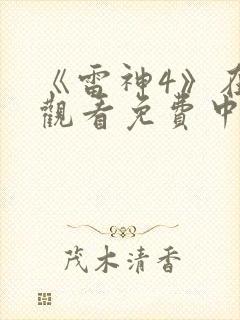 《雷神4》在
觀看免費中
茂木清香